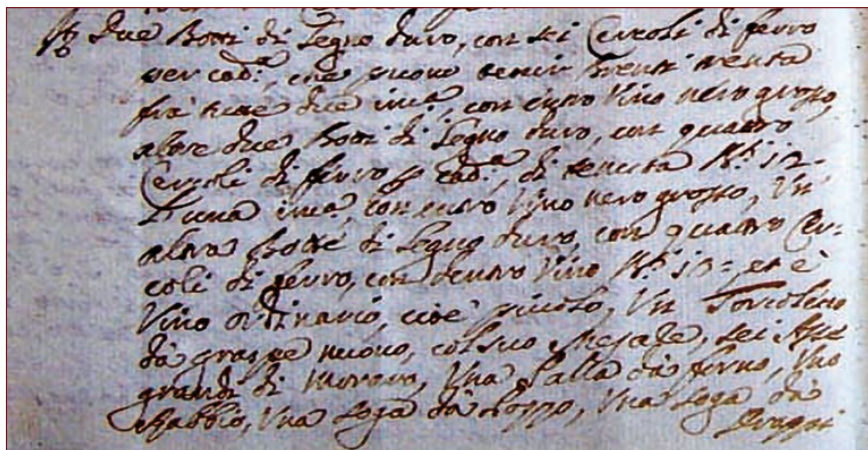 due Botti di Legno duro, con sei Cercoli di ferro
per cad:ª, che puono tenir Brenti trenta
frà tutte due inc:ª, con entro Vino nero grosso,
altre due Botti di Legno duro, con quattro
Cercoli di ferro p cad:ª, di tenuta Bti 12-
l'una inc:ª, con entro Vino nero grosso, Un'
altra Botte di Legno duro, con quattro Cer-
coli di ferro, con dentro Vino Bti 10= et è
Vino ordinario, cioè picolo, Un Torcoletto
dà graspe nuovo, col suo sei
grandi di Una Palla dà forno, Uno
Rabbio, Una Soga dà Una Soga dà